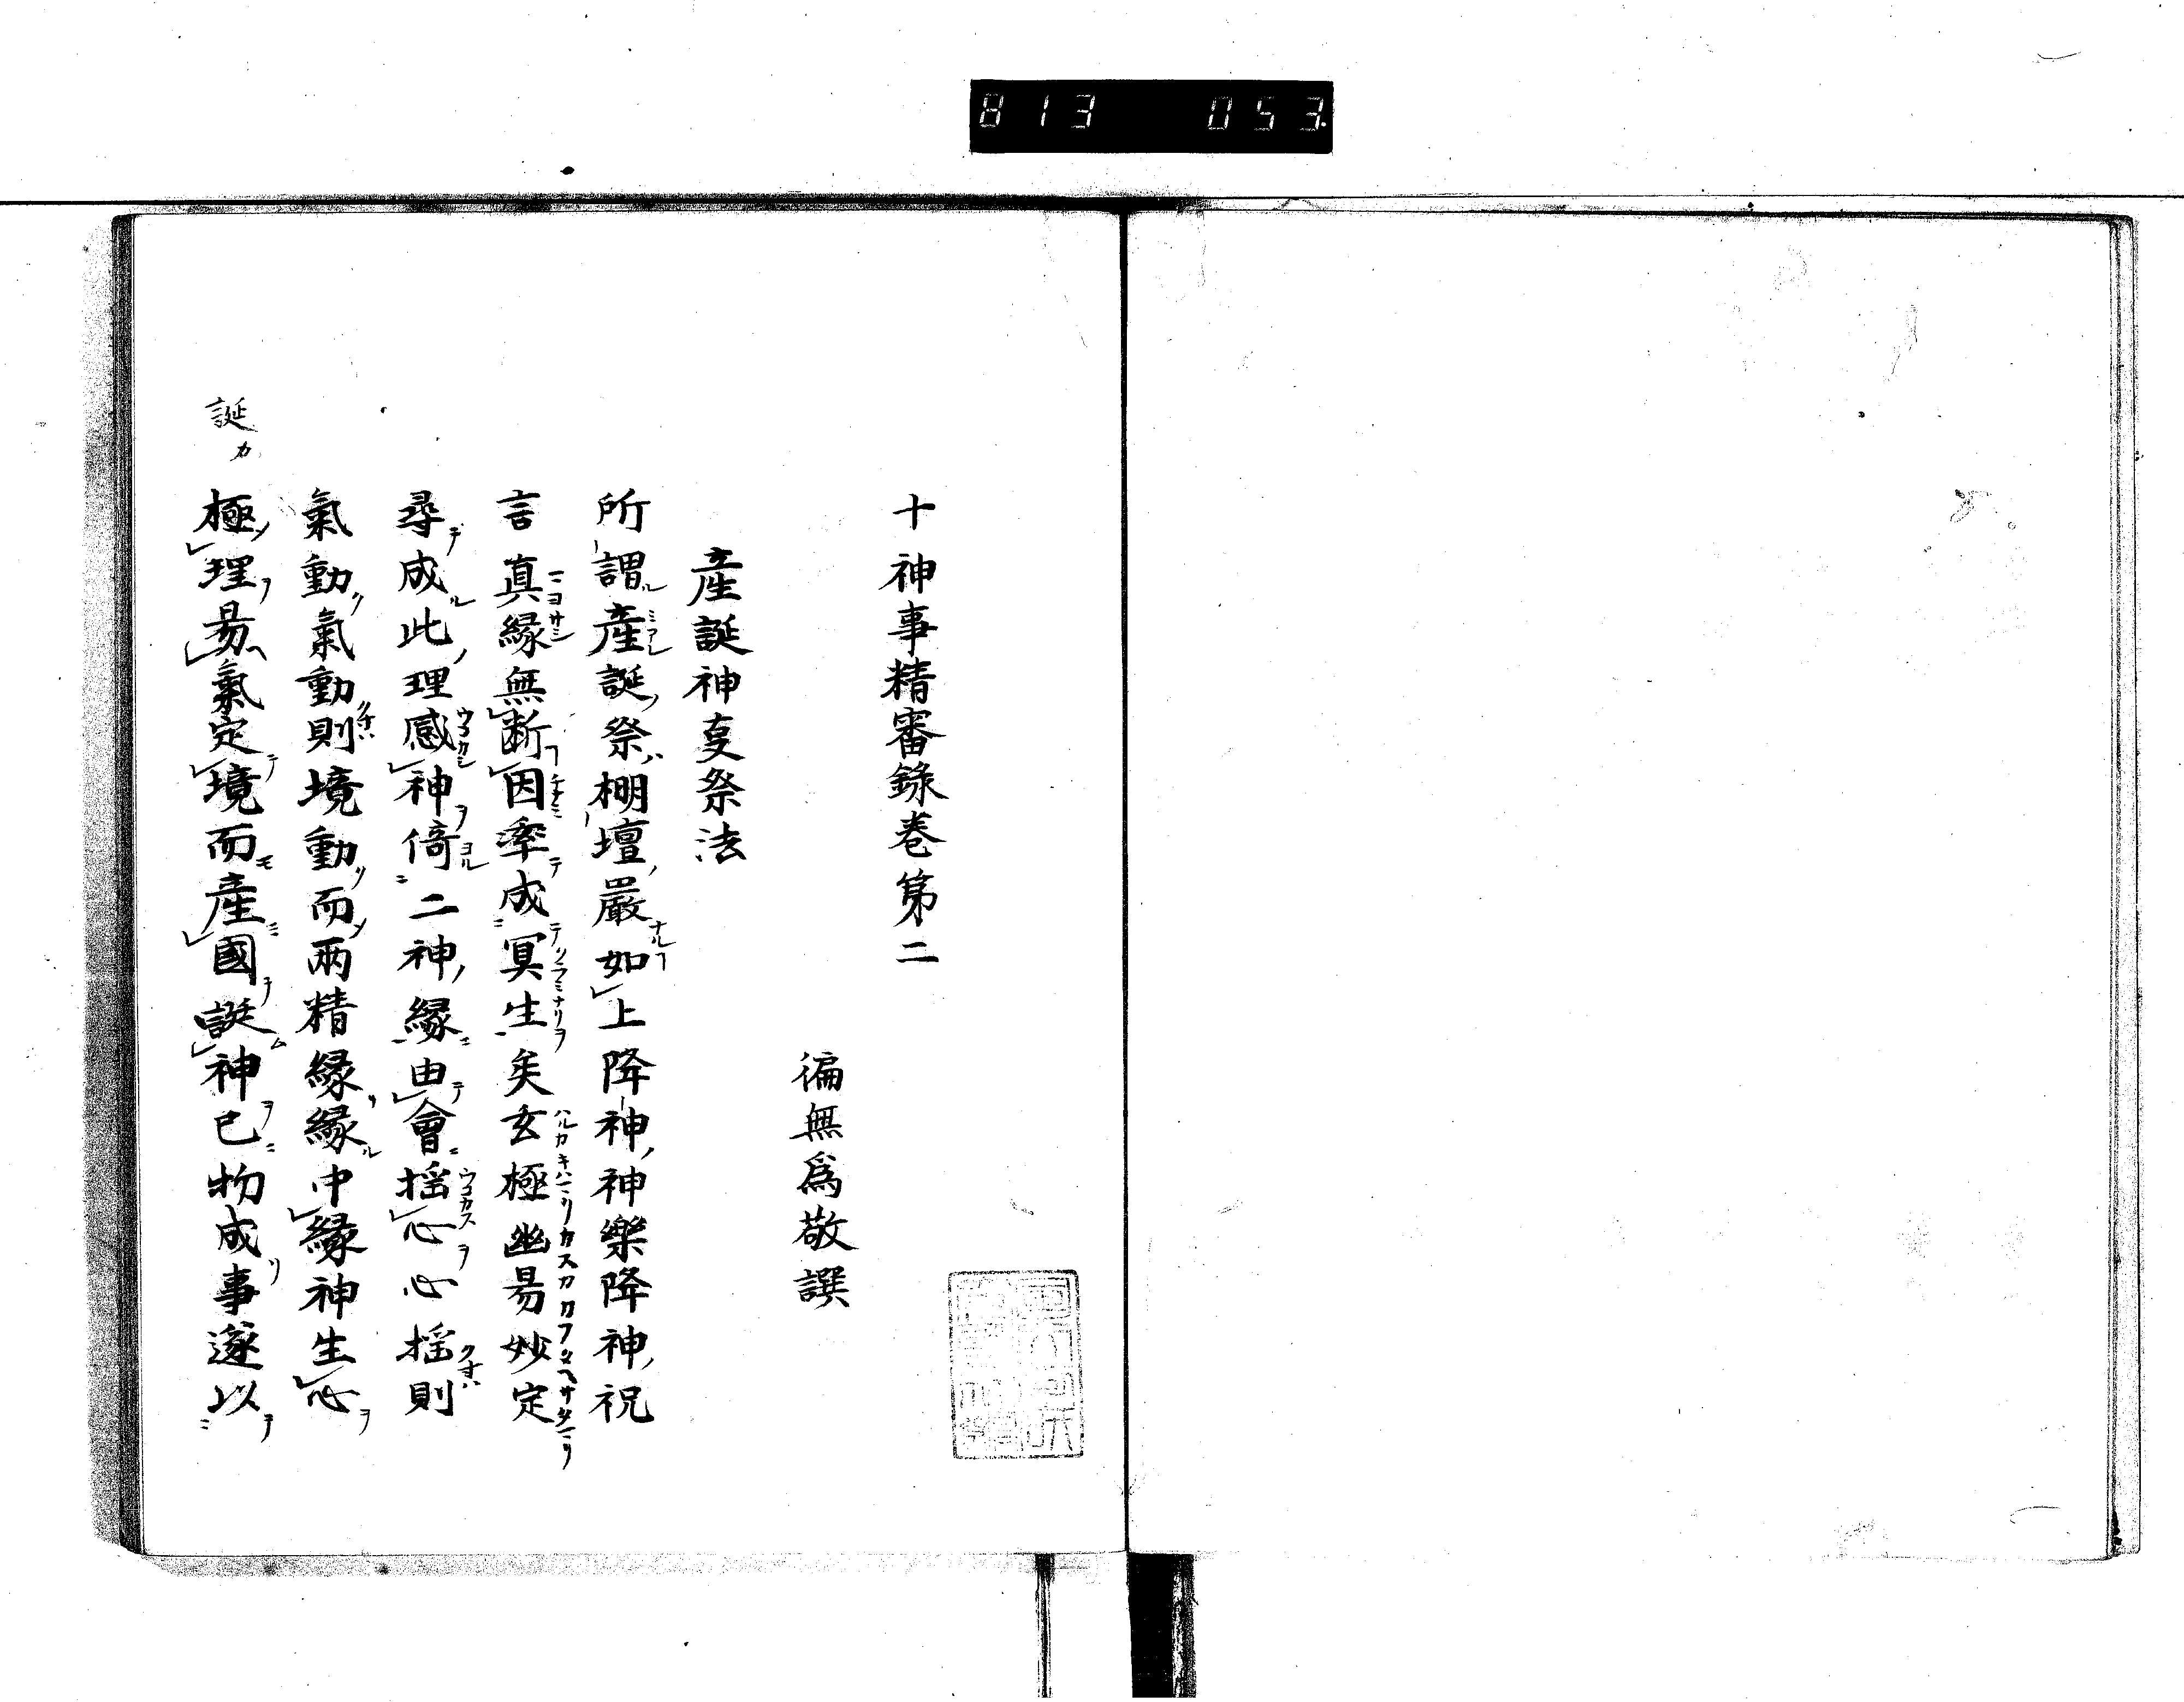 813 053
十神事精審錄巻第二
徧無爲敬譔
產誕神㕝祭法
所謂產誕祭棚壇嚴如上降神神樂降神祝
言真緣無断因率成冥生矣玄極幽昜妙定
尋成此理感神倚二神緣由會揺心心揺則
氣動氣動則境動而兩精緣緣中緣神生心
極理昜氣定境而產國誕神已物成事遂以
誕カ